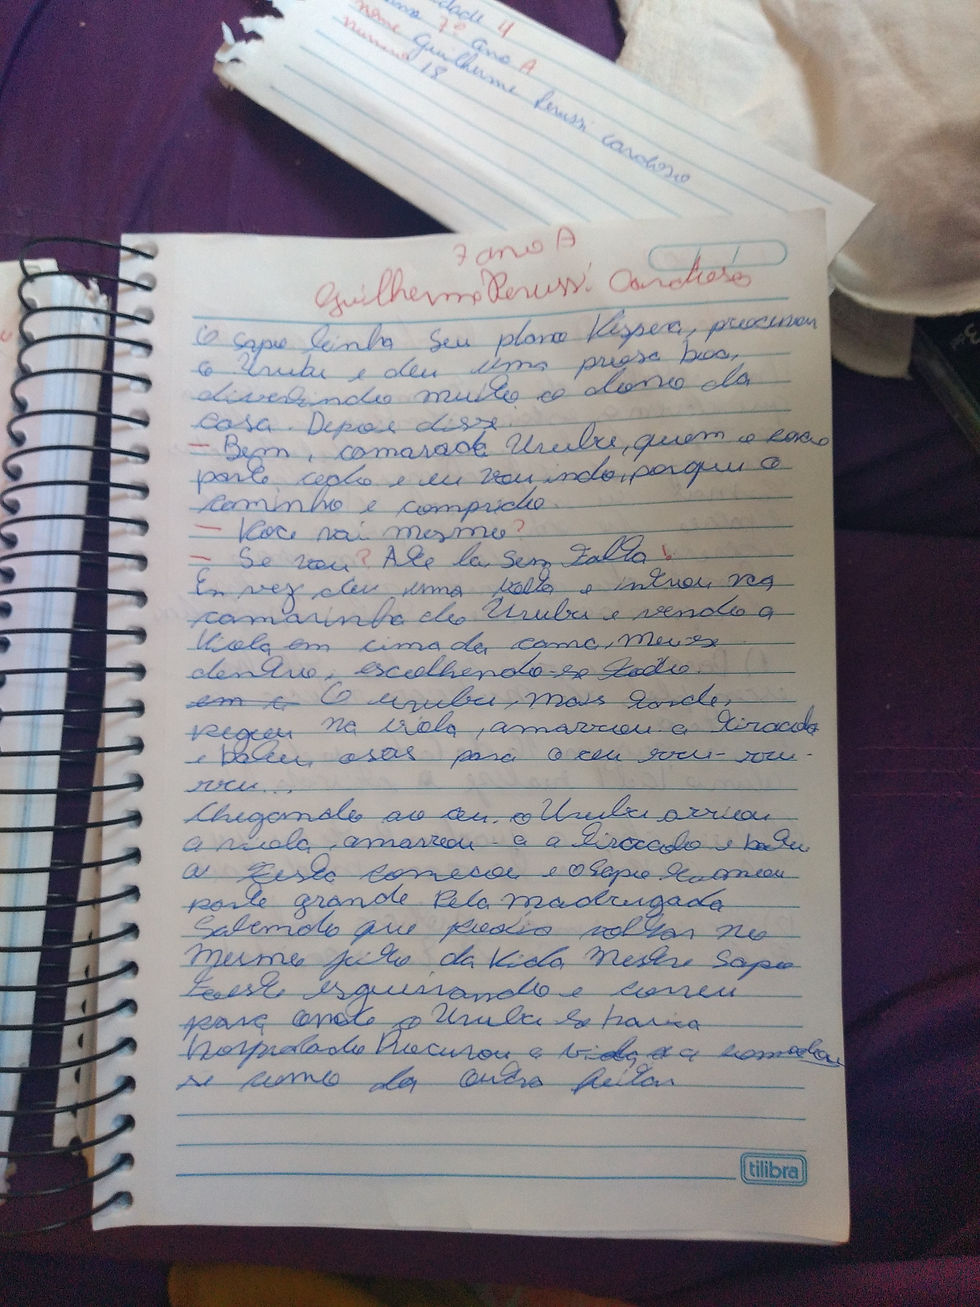 idade 4
7º ano A
nome Guilherme Perussi Cardoso
numero 18
7 ano A
Guilherme Perussi Cardoso
O sapo tinha seu plano Vespera, procurou
o Urubu e deu uma prosa boa,
divertindo muito o dono da
casa. Depois disse.
– Bem, camarada Urubu, quem e coxo
parte cedo e eu vou indo, porque o
caminho e comprido.
– Voce vai mesmo?
– Se vou? Ate la sem falta!
Em vez deu uma volta e entrou na
camarinha do Urubu e vendo a
Viola em cima da cama, meu-se
dentro, escolhendo-se todo.
O urubu, mais tarde,
pegou na viola, amarrou a
e bateu asas para o ceu rru-rru-
rru...
Chegando ao ceu o Urubu arriou
a viola, amarrou-a a e bateu
a festa comecou e o sapo
parte grande Pela madrugada
Sabendo que podia voltar no
mesmo jeito da Vida mestre Sapo
e correu
para onde o Urubu se havia
hospedado Procurou a
se como da outra
tilibra